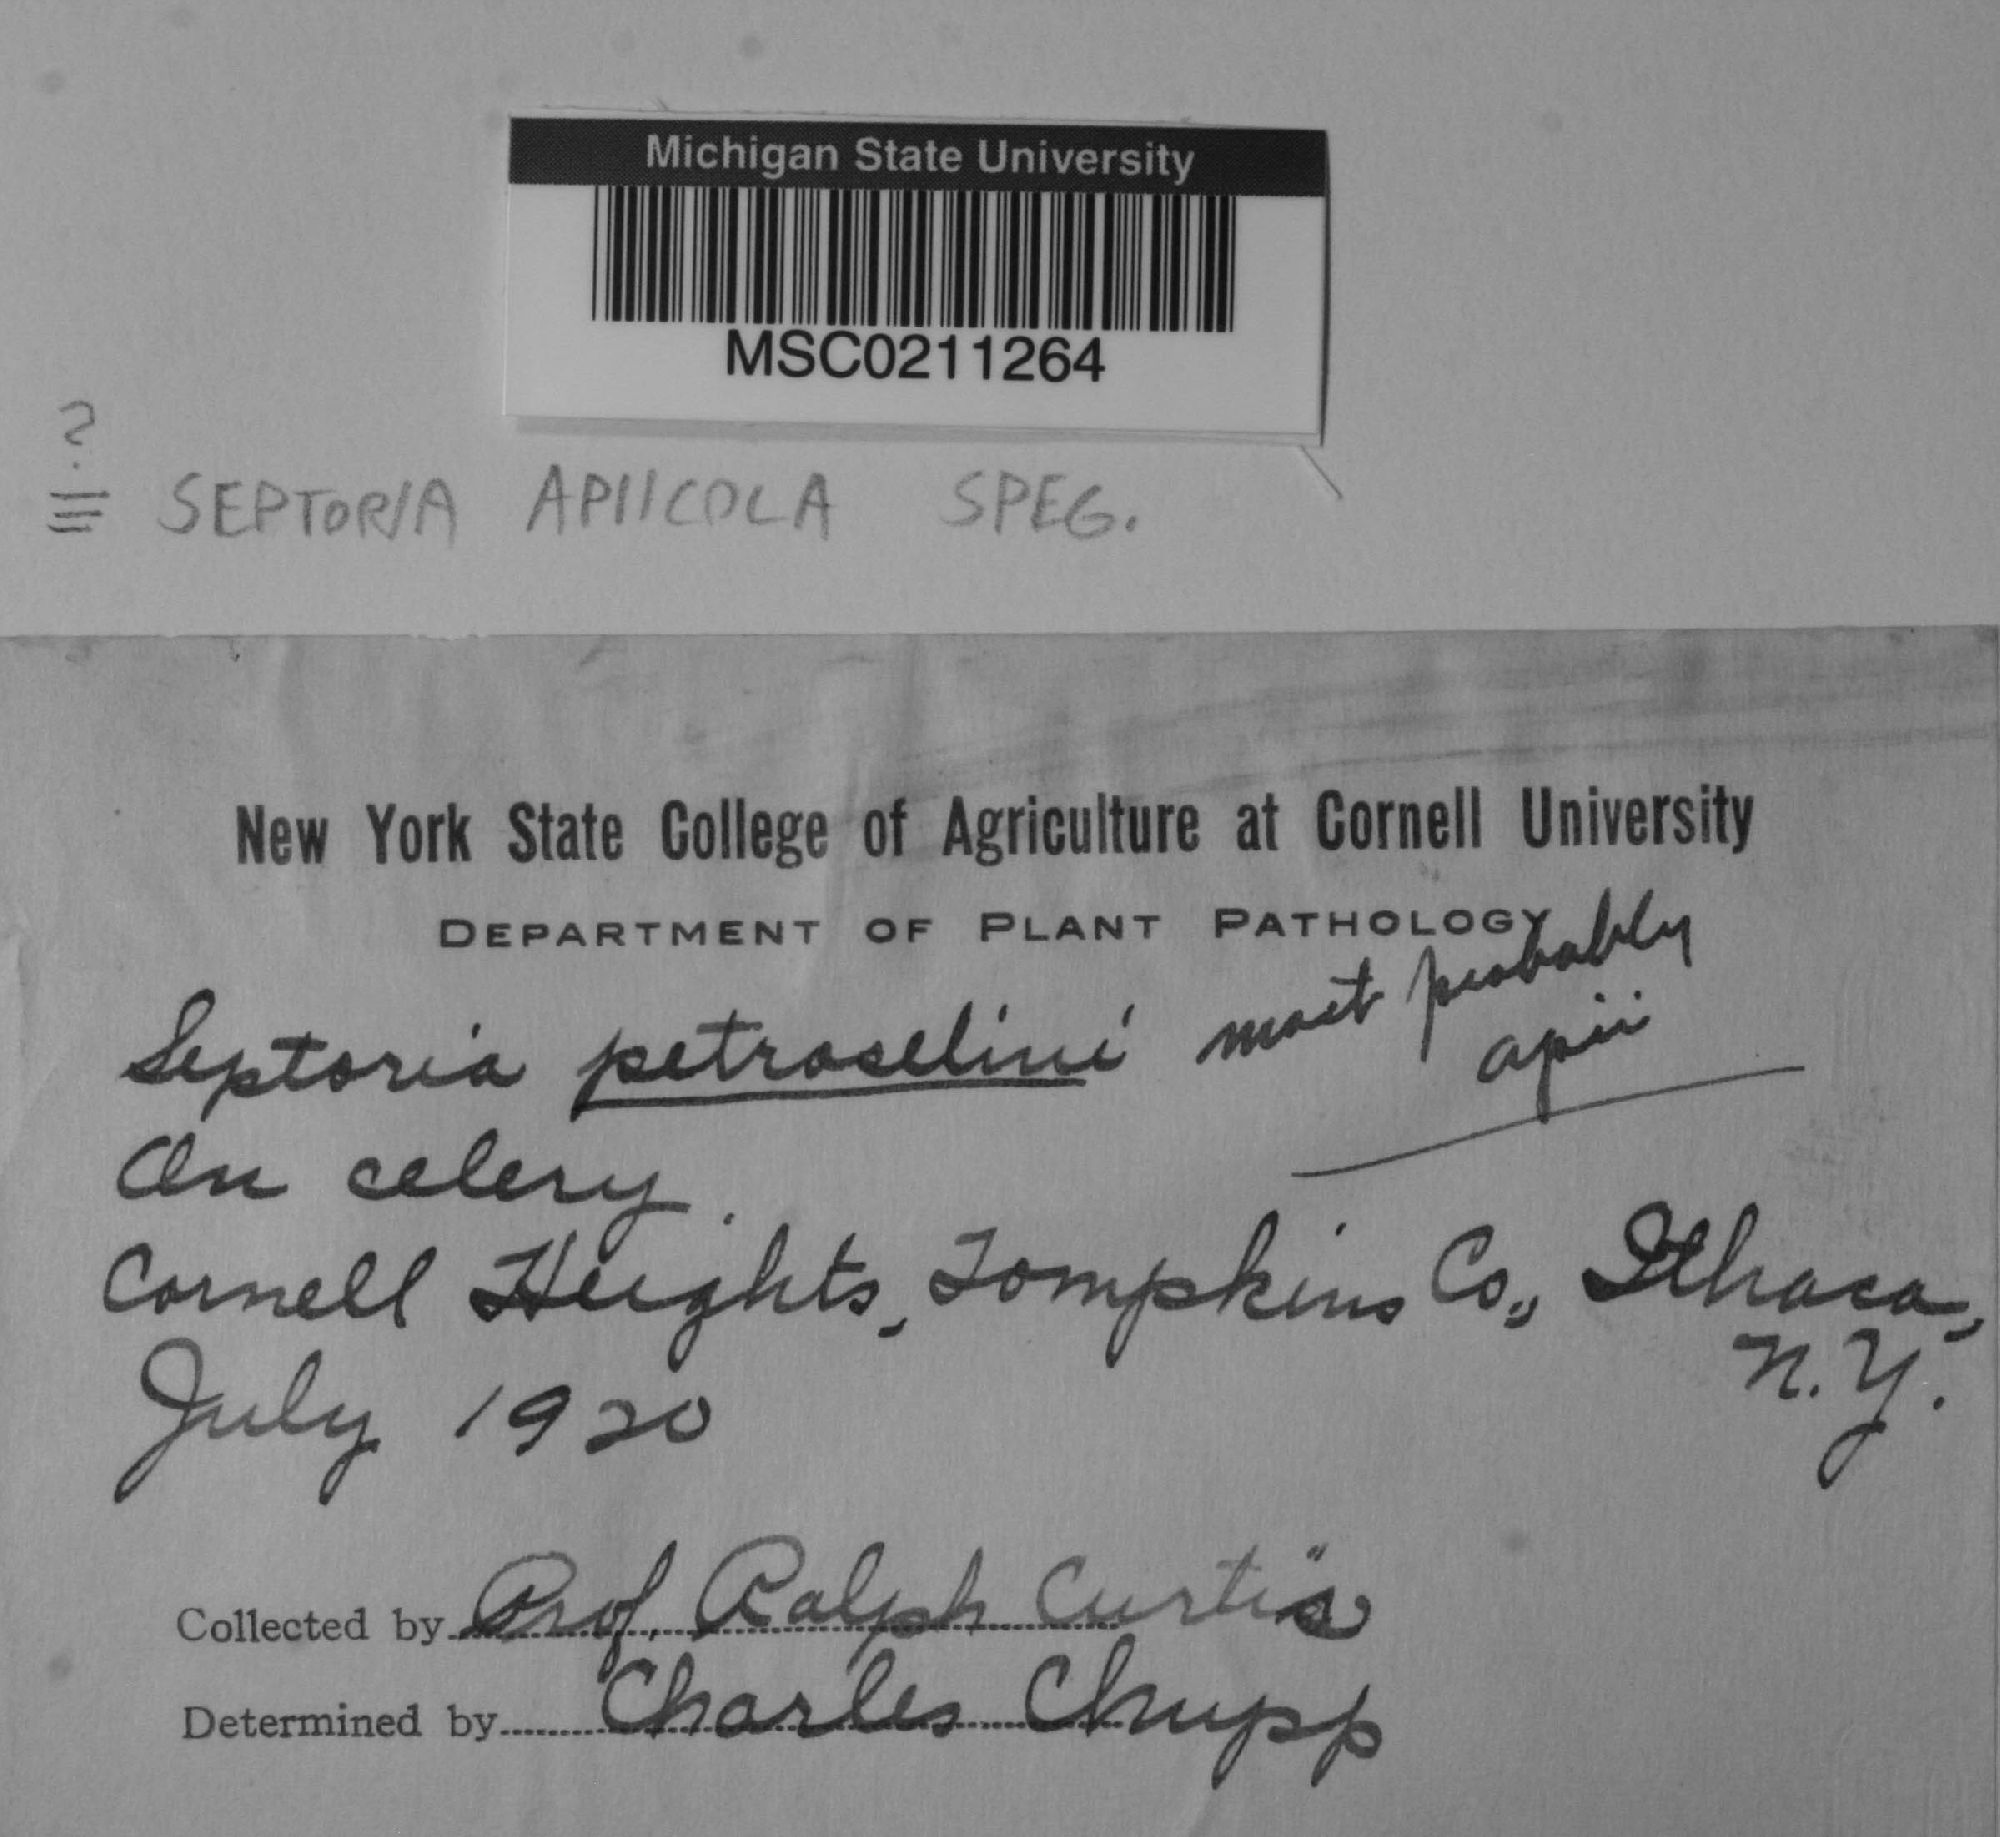 Michigan State University
MSC0211264
?
≡ SEPTORIA APIICOLA SPEG.
New York State College of Agriculture at Cornell University
DEPARTMENT OF PLANT PATHOLOGY
Septoria petroselini most probably
apii
On celery.
Cornell Heights, Tompkins Co., Ithaca,
N.Y.
July 1920
Collected by Prof. Ralph Curtis
Determined by Charles Chupp